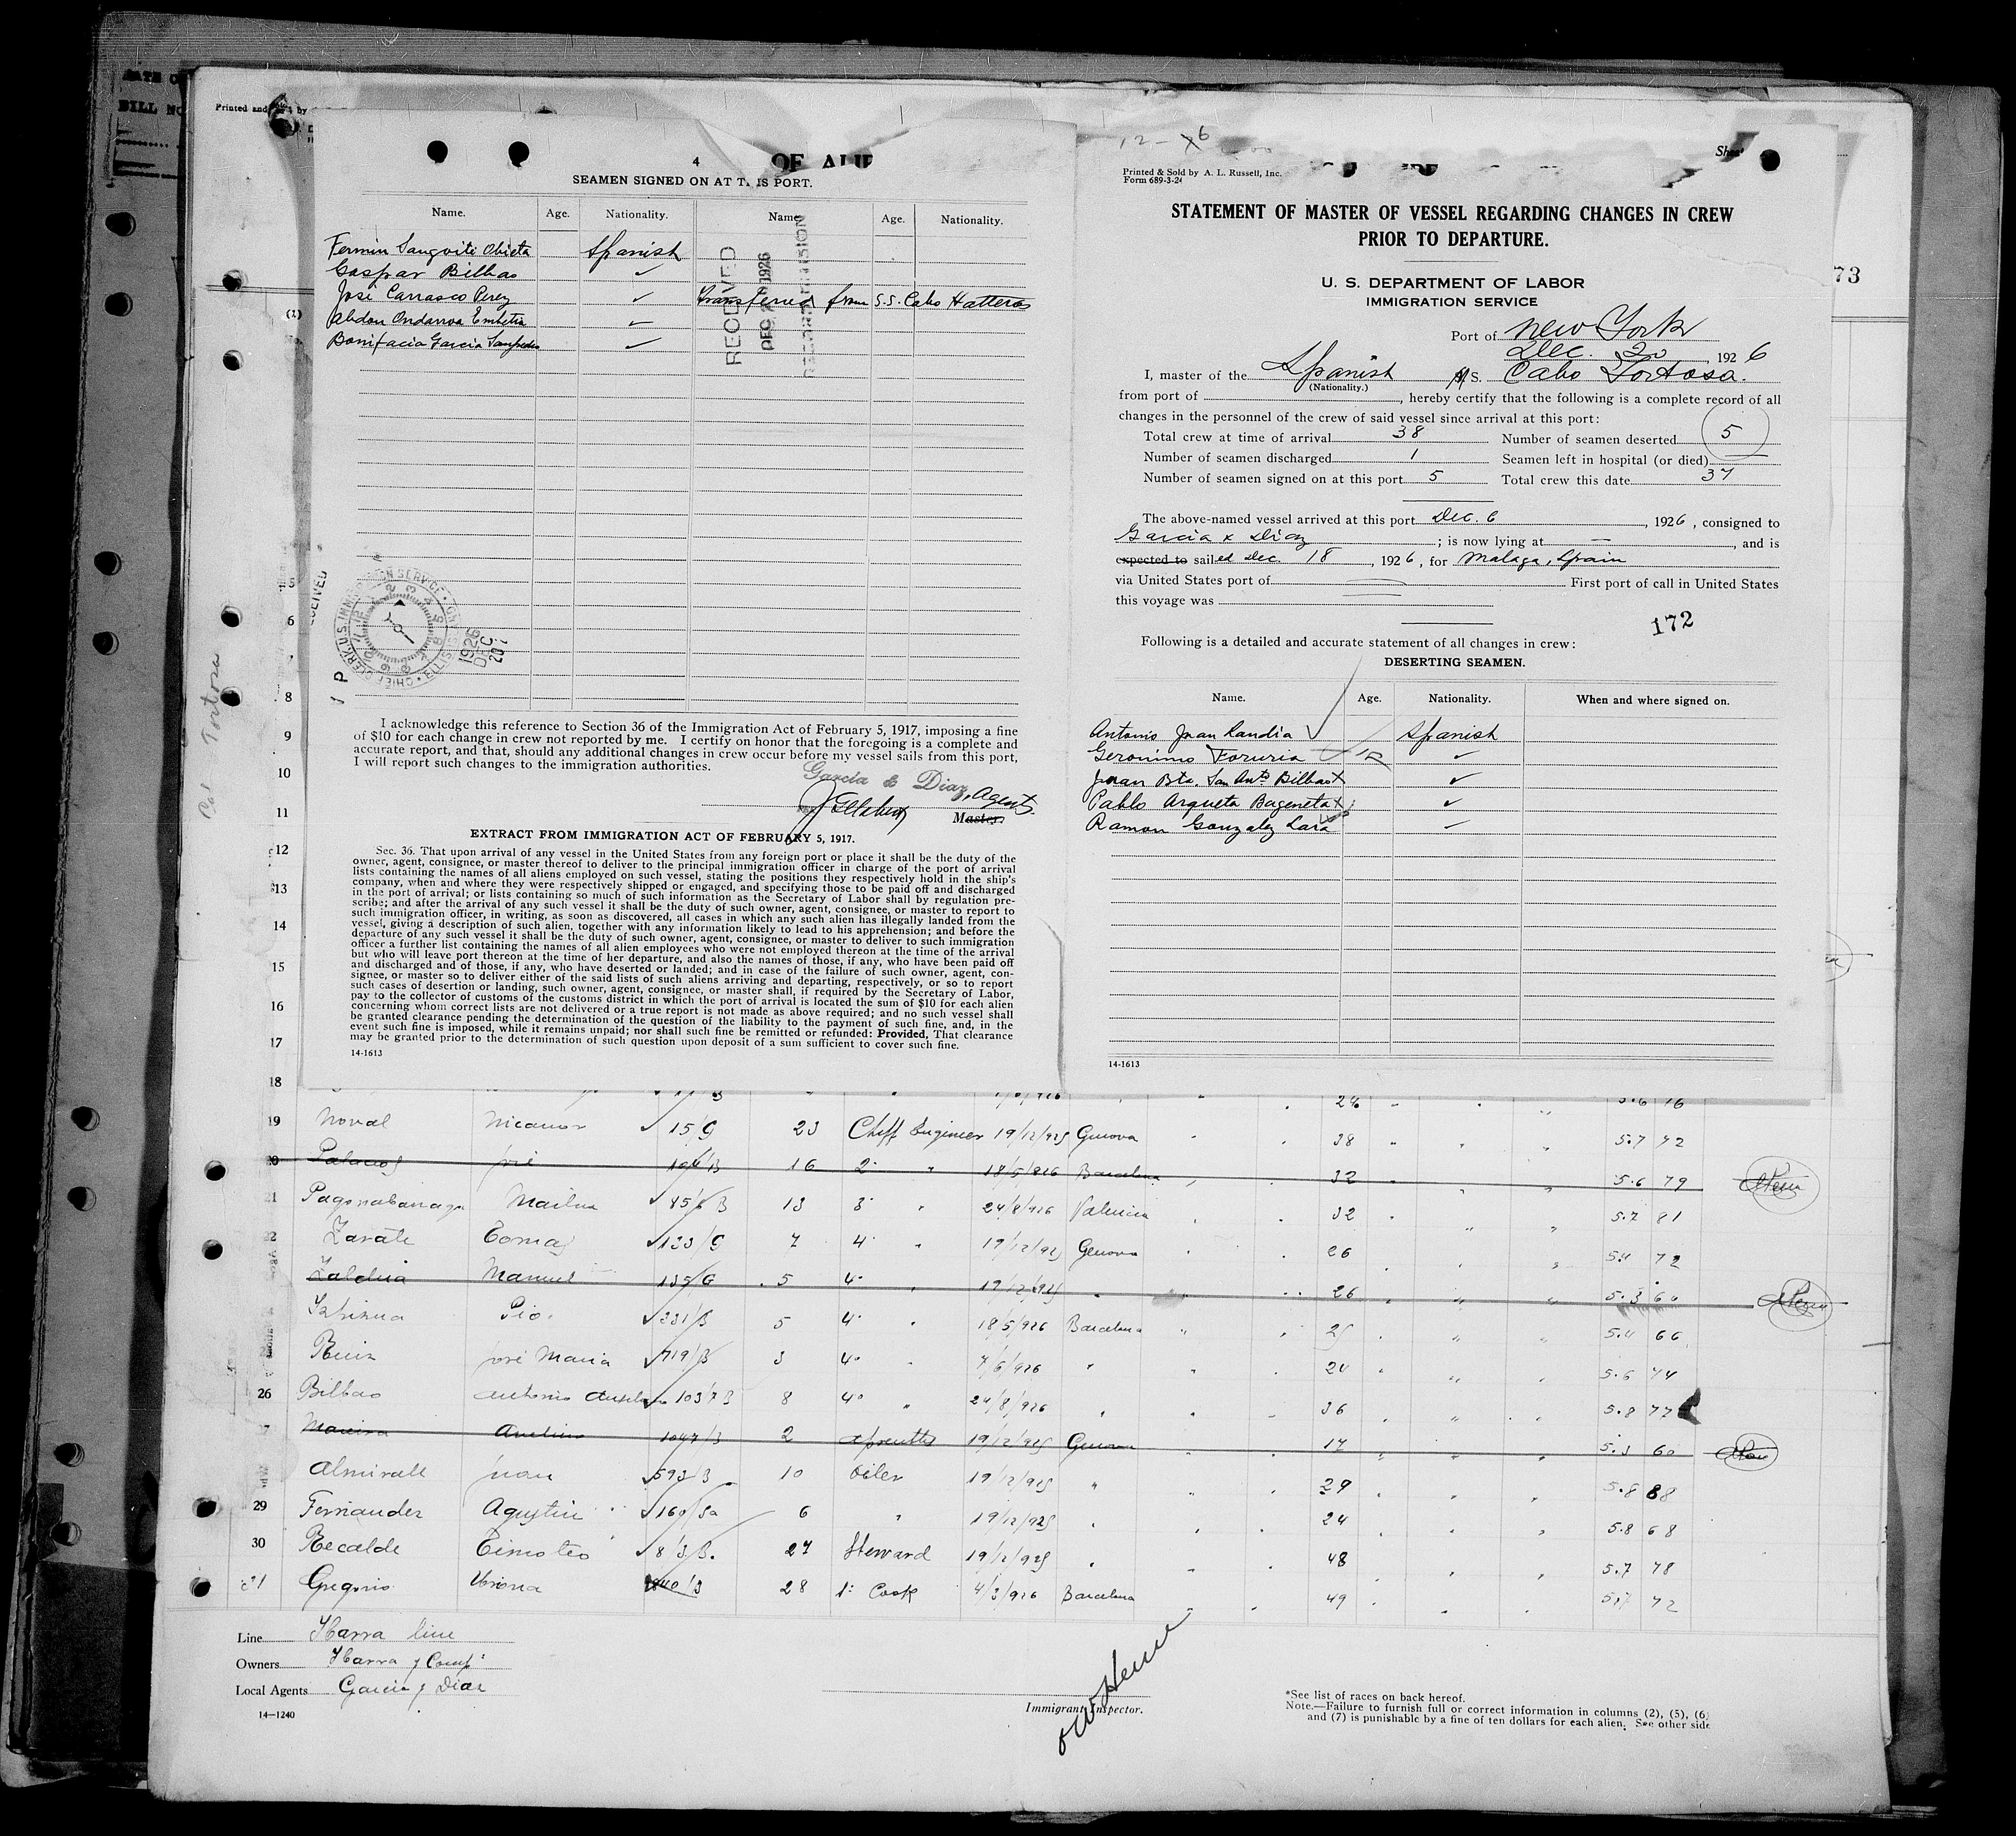 Printed and
BILL NO
4
OF ALIE
SEAMEN SIGNED ON AT THIS PORT.
Name. Age. Nationality. Name Age. Nationality.
Fermin Sangoiti Obieta Spanish
Gaspar Bilbao ✓
José Carrasco Perez ✓ transferred from S.S. Cabo Hatteras
Abdon Ondarroa ✓
Bonifacio Garcia ✓
RECEIVED
DEC 20 1926
U.S. IMMIGRATION SERVICE
CHIEF CLERK
1926
DEC
20
I acknowledge this reference to Section 36 of the Immigration Act of February 5, 1917, imposing a fine
of $10 for each change in crew not reported by me. I certify on honor that the foregoing is a complete and
accurate report, and that, should any additional changes in crew occur before my vessel sails from this port,
I will report such changes to the immigration authorities.
Garcia & Diaz, Agents
Master.
EXTRACT FROM IMMIGRATION ACT OF FEBRUARY 5, 1917.
Sec. 36. That upon arrival of any vessel in the United States from any foreign port or place it shall be the duty of the
owner, agent, consignee, or master thereof to deliver to the principal immigration officer in charge of the port of arrival
lists containing the names of all aliens employed on such vessel, stating the positions they respectively hold in the ship's
company, when and where they were respectively shipped or engaged, and specifying those to be paid off and discharged
in the port of arrival; or lists containing so much of such information as the Secretary of Labor shall by regulation pre-
scribe; and after the arrival of any such vessel it shall be the duty of such owner, agent, consignee, or master to report to
such immigration officer, in writing, as soon as discovered, all cases in which any such alien has illegally landed from the
vessel, giving a description of such alien, together with any information likely to lead to his apprehension; and before the
departure of any such vessel it shall be the duty of such owner, agent, consignee, or master to deliver to such immigration
officer a further list containing the names of all alien employees who were not employed thereon at the time of the arrival
but who will leave port thereon at the time of her departure, and also the names of those, if any, who have been paid off
and discharged and of those, if any, who have deserted or landed; and in case of the failure of such owner, agent, con-
signee, or master so to deliver either of the said lists of such aliens arriving and departing, respectively, or so to report
such cases of desertion or landing, such owner, agent, consignee, or master shall, if required by the Secretary of Labor,
pay to the collector of customs of the customs district in which the port of arrival is located the sum of $10 for each alien
concerning whom correct lists are not delivered or a true report is not made as above required; and no such vessel shall
be granted clearance pending the determination of the question of the liability to the payment of such fine, and, in the
event such fine is imposed, while it remains unpaid; nor shall such fine be remitted or refunded: Provided, That clearance
may be granted prior to the determination of such question upon deposit of a sum sufficient to cover such fine.
14-1613
Printed & Sold by A. L. Russell, Inc.
Form 689-3-24
STATEMENT OF MASTER OF VESSEL REGARDING CHANGES IN CREW
PRIOR TO DEPARTURE.
U. S. DEPARTMENT OF LABOR
IMMIGRATION SERVICE
Port of New York
Dec. 20, 1926
I, master of the Spanish S. Cabo Tortosa.
(Nationality.)
from port of , hereby certify that the following is a complete record of all
changes in the personnel of the crew of said vessel since arrival at this port:
Total crew at time of arrival 38 Number of seamen deserted 5
Number of seamen discharged 1 Seamen left in hospital (or died) —
Number of seamen signed on at this port 5 Total crew this date 37
The above-named vessel arrived at this port Dec. 6, 1926, consigned to
Garcia & Diaz; is now lying at —, and is
expected to sailed Dec. 18, 1926, for Malaga, Spain
via United States port of First port of call in United States
this voyage was
172
Following is a detailed and accurate statement of all changes in crew:
DESERTING SEAMEN.
Name. Age. Nationality. When and where signed on.
Antonio Juan Candia ✓ Spanish
Geronimo Foruria ✓
Juan Bta. San Anto Bilbao x ✓
Pablo Arqueta Bageneta x ✓
Ramon Gonzalez Lara ✓
14-1613
73
Cabo Tortosa
18 24 5.6 76
19 Noval Nicanor ✓ 15/G 23 Cheff Engineer 19/12/925 Genova 38 5.7 72
20 Palacios José 16 2º 18/5/926 Barcelona 32 5.6 79
21 ✓ 13 3º 24/8/926 Valencia 32 5.7 81
22 Zarate Tomas ✓ 133/G 7 4º 19/12/925 Genova 26 5.4 72
Zaldua Manuel 135/G 5 4º 19/12/925 26 5.3 60
Pio ✓ 331/B 5 4º 18/5/926 Barcelona 25 5.4 66
Ruiz José Maria ✓ 719/B 3 4º 7/6/926 24 5.6 74
26 Bilbao Antonio ✓ 1037B 8 4º 24/8/926 36 5.8 77
7 Avelino 1047/B 2 19/12/925 Genova 17 5.3 60
Almirall Juan ✓ 593B 10 Oiler 19/12/925 29 5.8 88
29 Fernandez Agustin ✓ 6 19/12/925 24 5.8 68
30 Recalde Timoteo ✓ 8/3B. 27 Steward 19/12/925 48 5.7 78
31 Gregorio 28 1º Cook 4/3/926 Barcelona 49 5.7 72
Line Ybarra line
Owners Ybarra y Compª
Local Agents Garcia y Diaz
14—1240
Immigrant Inspector.
*See list of races on back hereof.
Note.—Failure to furnish full or correct information in columns (2), (5), (6)
and (7) is punishable by a fine of ten dollars for each alien. See other side